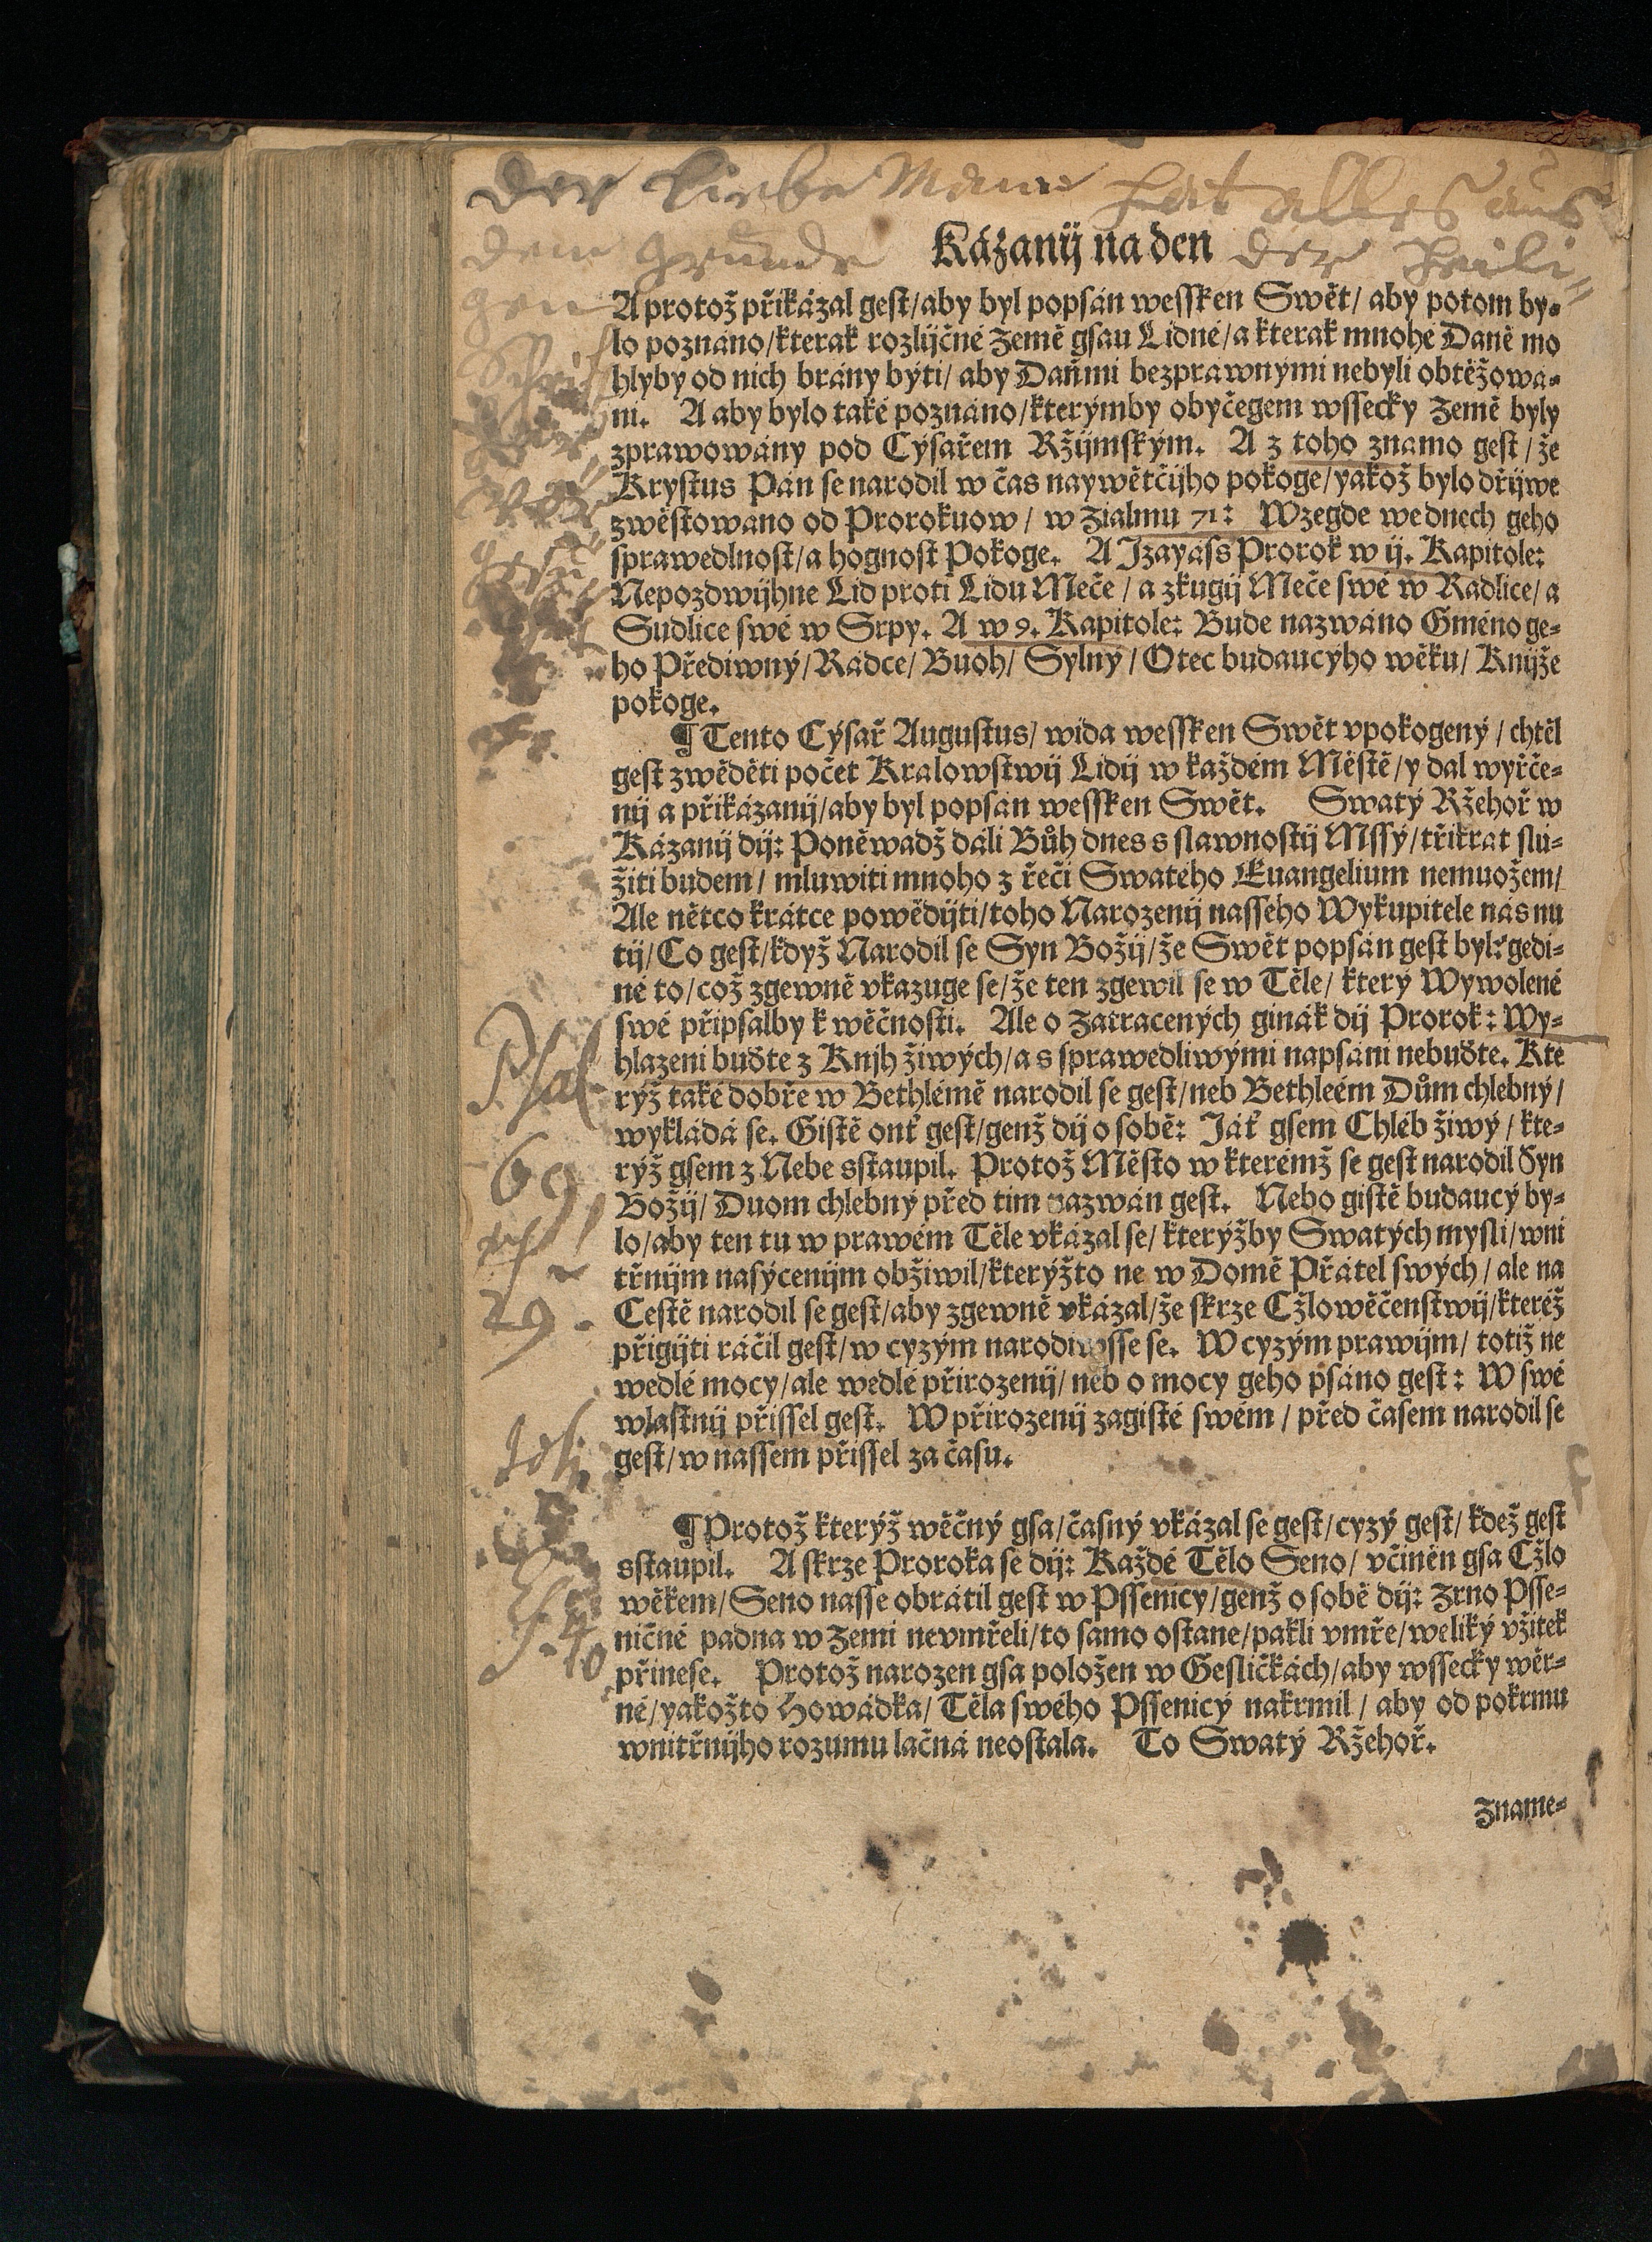 der liebe Mann hat alles aus
dem grunde der heili-
gen
Schrif
Kázanij na den
A protož přikázal gest/aby byl popsán wessken Swět/ aby potom by-
lo poznáno/kterak rozlijčné Země gsau Lidné/a kterak mnohé Daně mo
hlyby od nich brány býti/ aby Daňmi bezprawnými nebyli obtěžowá-
ni. A aby bylo také poznáno/kterýmby obyčegem wssecky Země byly
zprawowány pod Cýsařem Ržijmským. A z toho známo gest/že
Krystus Pán se narodil w čas naywětčijho pokoge/yakož bylo dřijwe
zwěstowáno od Prorokuow/ w Žialmu 71: Wzegde we dnech geho
sprawedlnost/a hognost Pokoge. A Izayáss Prorok w ij. Kapitole:
Nepozdwijhne Lid proti Lidu Meče/ a zkugij Meče swé w Radlice/a
Sudlice swé w Srpy. A w 9. Kapitole: Bude nazwáno Gméno ge-
ho Přediwný/Rádce/Buoh/ Sylný/Otec budaucýho wěku/ Knijže
pokoge.
¶ Tento Cýsař Augustus/ wida wessken Swět vpokogený/chtěl
gest zwěděti počet Kralowstwij Lidij w každém Městě/y dal wyřče-
nij a přikázanij/aby byl popsán wessken Swět. Swatý Ržehoř w
Kázanij dij: Poněwadž dáli Bůh dnes s slawnostij Mssý/třikrát slú-
žiti budem/ mluwiti mnoho z řeči Swatého Euangelium nemuožem/
Ale nětco krátce powědijti/toho Narozenij nasseho Wykupitele nás nu
tij/Co gest/když Narodil se Syn Božij/že Swět popsán gest byl: gedi-
né to/což zgewně vkazuge se/že ten zgewil se w Těle/ který Wywolené
swé připsalby k wěčnosti. Ale o Zatracených ginák dij Prorok: Wy-
hlazeni buďte z Knjh žiwých/a s sprawedliwými napsáni nebuďte. Kte
rýž také dobře w Bethlémě narodil se gest/neb Bethleém Dům chlebný/
wykládá se. Gistě onť gest/genž dij o sobě: Jáť gsem Chléb žiwý/kte-
rýž gsem z Nebe sstaupil. Protož Město w kterémž se gest narodil Syn
Božij/ Duom chlebný před tim nazwán gest. Nebo gistě budaucý by-
lo/aby ten tu w prawém Těle vkázal se/kterýžby Swatých mysli/wni
třnijm nasýcenijm obžiwil/kterýžto ne w Domě Přátel swých/ale na
Cestě narodil se gest/aby zgewně vkázal/že skrze Cžlowěčenstwij/kteréž
přigijti ráčil gest/w cyzým narodiwsse se. W cyzým prawijm/ totiž ne
wedlé mocy/ale wedlé přirozenij/neb o mocy geho psáno gest: W swé
wlastnij přissel gest. W přirozenij zagisté swém/před časem narodil se
gest/w nassem přissel za času.
¶ Protož kterýž wěčný gsa/časný vkázal se gest/cyzý gest/kdež gest
sstaupil. A skrze Proroka se dij: Každé Tělo Seno/ včiněn gsa Cžlo
wěkem/Seno nasse obrátil gest w Pssenicy/genž o sobě dij: Zrno Psse-
ničné padna w Zemi nevmřeli/to samo ostane/pakli vmře/weliký vžitek
přinese. Protož narozen gsa položen w Gesličkách/aby wssecky wěr-
né/yakožto Howádka/Těla swého Pssenicý nakrmil/ aby od pokrmu
wnitřnijho rozumu lačná neostala. To Swatý Ržehoř.
Zname-
Psal
69
29.
Es. 40